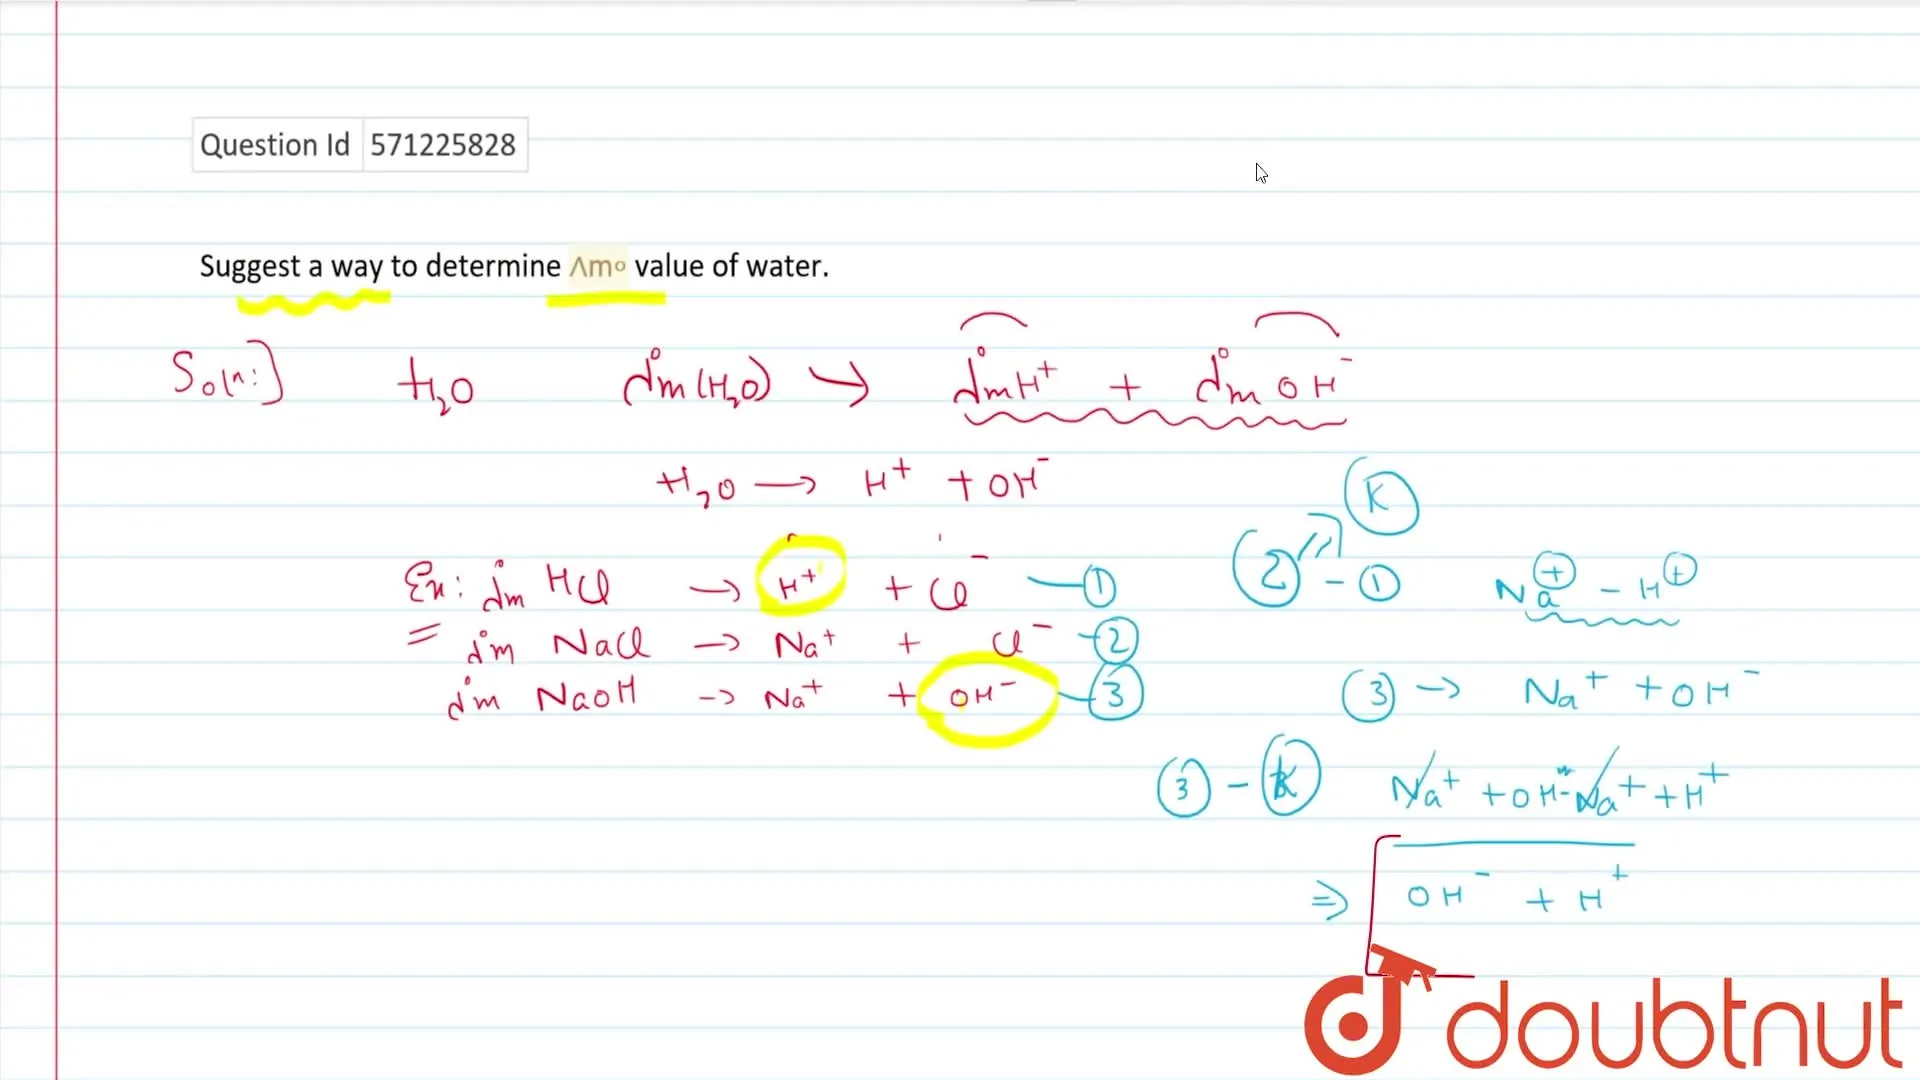 Question Id 571225828
Suggest a way to determine Λm° value of water.
Soln:] H₂O λ°m(H₂O) → λ°mH⁺ + λ°m OH⁻
H₂O → H⁺ + OH⁻
K
Ex: λ°m HCl → H⁺ + Cl⁻ — ①
② - ① Na⁺ - H⁺
λ°m NaCl → Na⁺ + Cl⁻ - ②
λ°m NaOH → Na⁺ + OH⁻ - ③
③ → Na⁺ + OH⁻
③ - K Na⁺ + OH⁻ - Na⁺ + H⁺
⇒ OH⁻ + H⁺
doubtnut